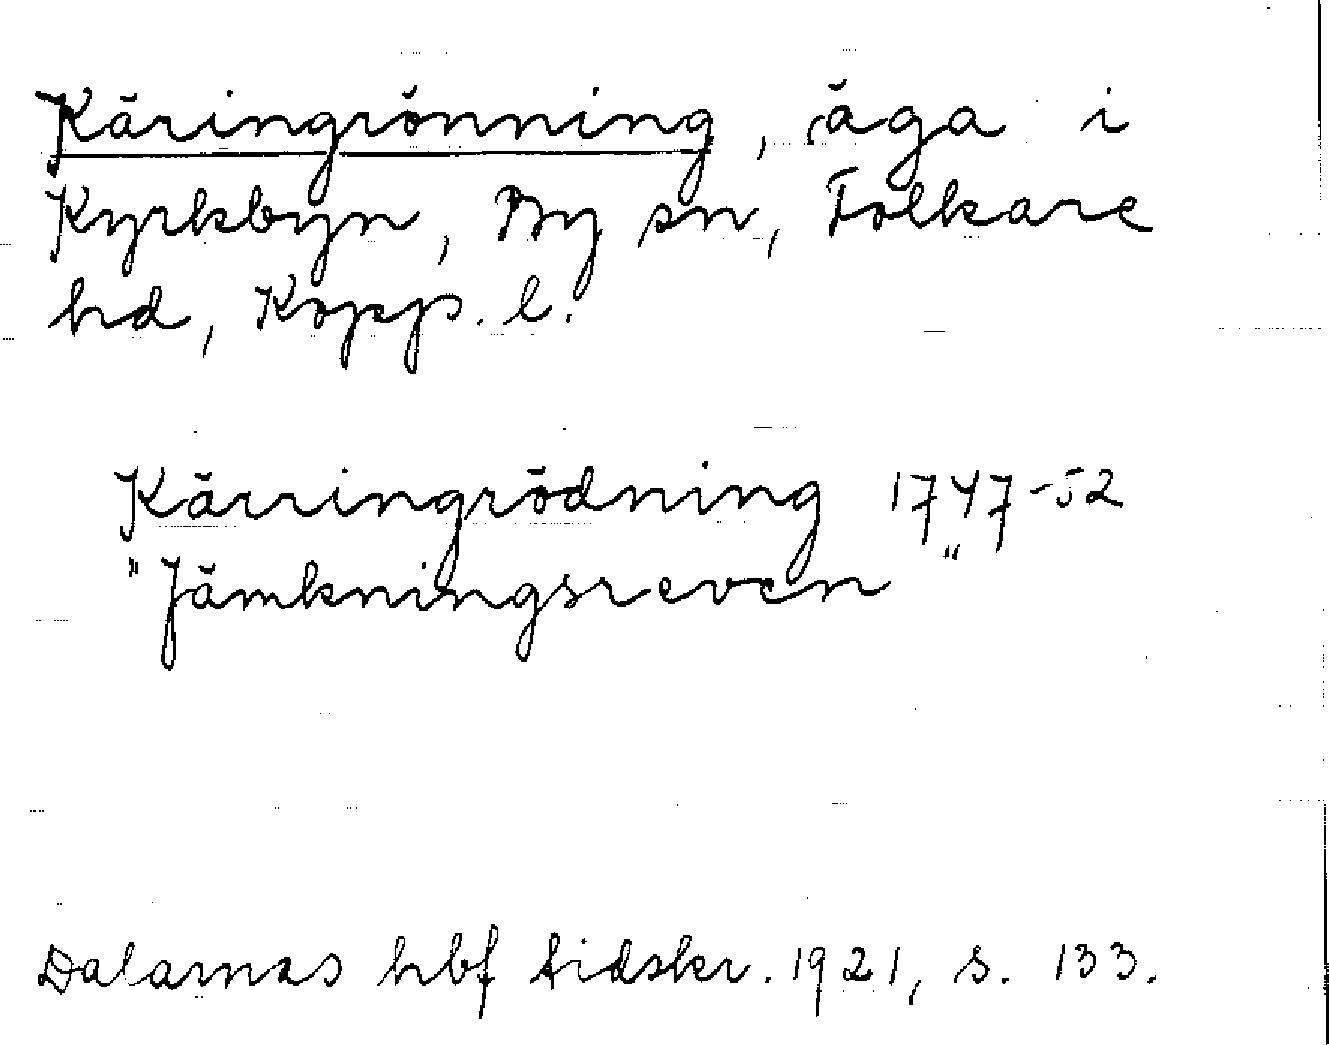 Käringrönning, äga i
Kyrkbyn, By sn, Folkare
hd, Kopp. l.
Kärringrödning 1747-52
"Jämkningsreven"
Dalarnas hbf tidskr. 1921, s. 133.